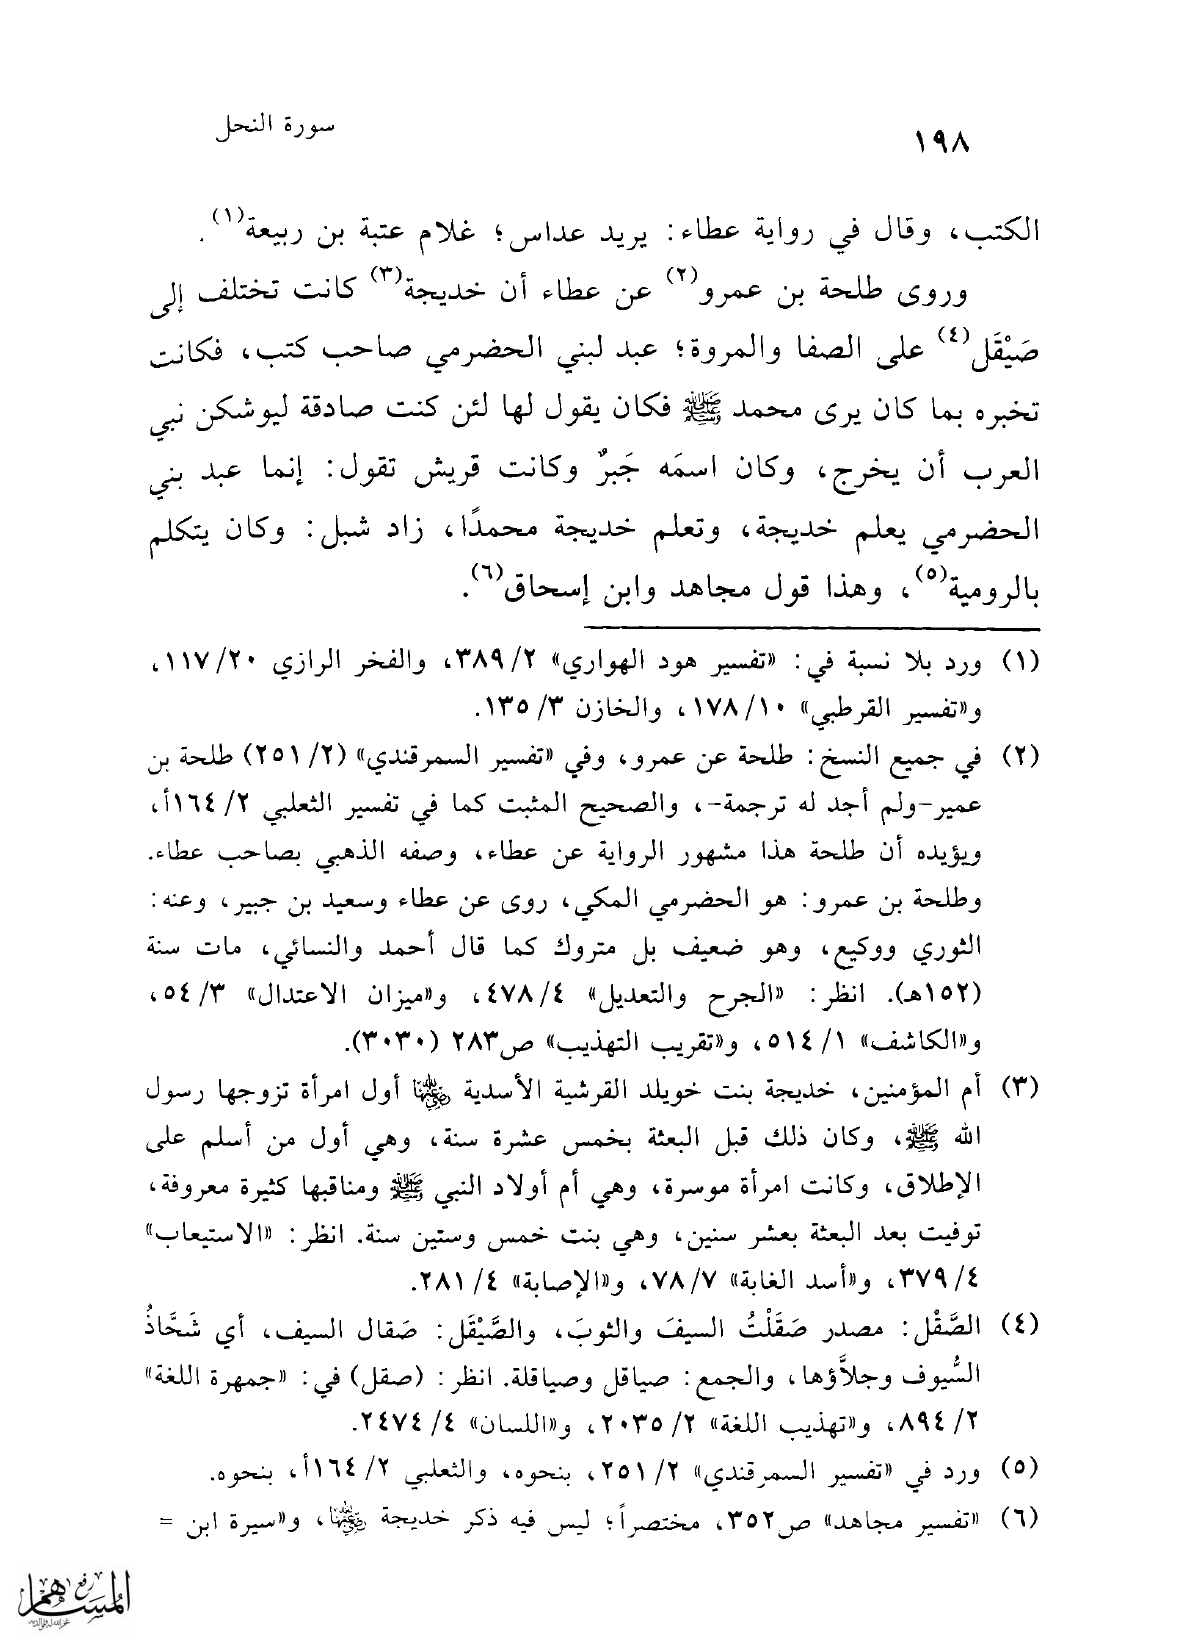 سورة النحل
١٩٨
الكتب، وقال في رواية عطاء: يريد عداس؛ غلام عتبة بن ربيعة(١).
وروى طلحة بن عمرو(٢) عن عطاء أن خديجة(٣) كانت تختلف إلى
صَيْقَل(٤) على الصفا والمروة؛ عبد لبني الحضرمي صاحب كتب، فكانت
تخبره بما كان يرى محمد ﷺ فكان يقول لها لئن كنت صادقة ليوشكن نبي
العرب أن يخرج، وكان اسمَه جَبرٌ وكانت قريش تقول: إنما عبد بني
الحضرمي يعلم خديجة، وتعلم خديجة محمدًا، زاد شبل: وكان يتكلم
بالرومية(٥)، وهذا قول مجاهد وابن إسحاق(٦).
(١) ورد بلا نسبة في: «تفسير هود الهواري» ٢/ ٣٨٩، والفخر الرازي ٢٠/ ١١٧،
و«تفسير القرطبي» ١٠/ ١٧٨، والخازن ٣/ ١٣٥.
(٢) في جميع النسخ: طلحة عن عمرو، وفي «تفسير السمرقندي» (٢/ ٢٥١) طلحة بن
عمير-ولم أجد له ترجمة-، والصحيح المثبت كما في تفسير الثعلبي ٢/ ١٦٤أ،
ويؤيده أن طلحة هذا مشهور الرواية عن عطاء، وصفه الذهبي بصاحب عطاء.
وطلحة بن عمرو: هو الحضرمي المكي، روى عن عطاء وسعيد بن جبير، وعنه:
الثوري ووكيع، وهو ضعيف بل متروك كما قال أحمد والنسائي، مات سنة
(١٥٢هـ). انظر: «الجرح والتعديل» ٤/ ٤٧٨، و«ميزان الاعتدال» ٣/ ٥٤،
و«الكاشف» ١/ ٥١٤، و«تقريب التهذيب» ص٢٨٣ (٣٠٣٠).
(٣) أم المؤمنين، خديجة بنت خويلد القرشية الأسدية رضي الله عنها أول امرأة تزوجها رسول
الله ﷺ، وكان ذلك قبل البعثة بخمس عشرة سنة، وهي أول من أسلم على
الإطلاق، وكانت امرأة موسرة، وهي أم أولاد النبي ﷺ ومناقبها كثيرة معروفة،
توفيت بعد البعثة بعشر سنين، وهي بنت خمس وستين سنة. انظر: «الاستيعاب»
٤/ ٣٧٩، و«أسد الغابة» ٧/ ٧٨، و«الإصابة» ٤/ ٢٨١.
(٤) الصَّقْل: مصدر صَقَلْتُ السيفَ والثوبَ، والصَّيْقَل: صَقال السيف، أي شَحَّاذُ
السُّيوف وجلاَّؤها، والجمع: صياقل وصياقلة. انظر: (صقل) في: «جمهرة اللغة»
٢/ ٨٩٤، و«تهذيب اللغة» ٢/ ٢٠٣٥، و«اللسان» ٤/ ٢٤٧٤.
(٥) ورد في «تفسير السمرقندي» ٢/ ٢٥١، بنحوه، والثعلبي ٢/ ١٦٤أ، بنحوه.
(٦) «تفسير مجاهد» ص٣٥٢، مختصراً؛ ليس فيه ذكر خديجة رضي الله عنها، و«سيرة ابن =
رفع
المساهم